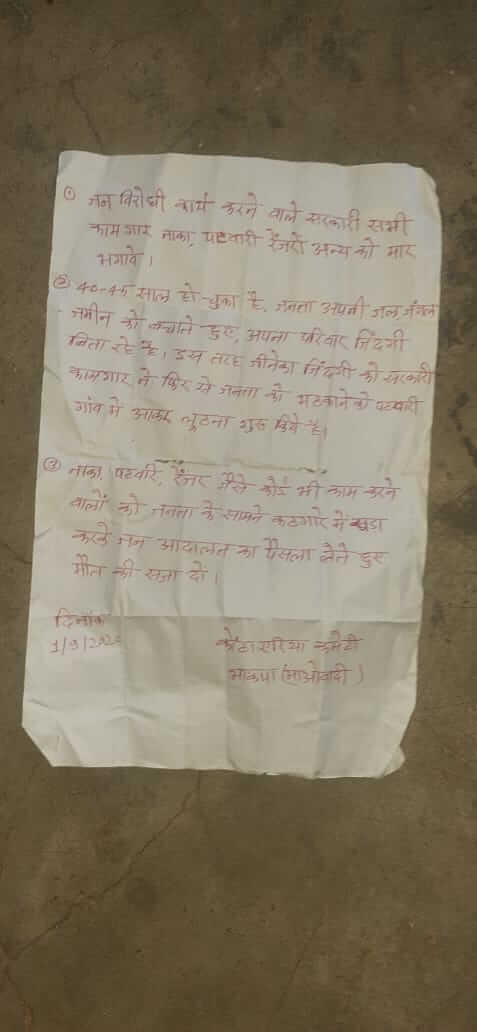 ① जन विरोधी कार्य करने वाले सरकारी सभी
कामगार नाका, पटवारी रेंजरों अन्य को मार
भगावे।
② 40-45 साल हो चुका है, जनता अपनी जल जंगल
जमीन को बचाते हुए, अपना परिवार जिंदगी
बिता रहे है। इस तरह जीनेका जिंदगी को सरकारी
कामगार ने फिर से जनता को भटकाने को पटवारी
गांव मे आकर लुटना शुरु किये है।
③ नाका, पटवारि, रेंजर जैसे कोई भी काम करने
वालों को जनता के सामने कठगोरे में खड़ा
करके जन आदालत का पैसला लेते हुए
मौत की सजा दों।
दिनांक
1/9/202
कोंटा एरिया कमेटी
भाकपा (माओवादी)